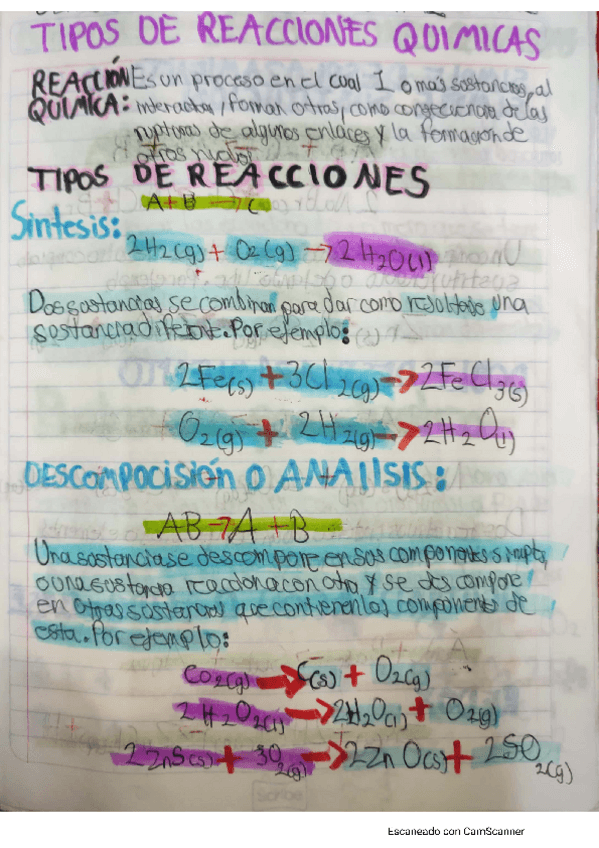 TIPOS DE REACCIONES QUIMICAS
REACCIÓN Es un proceso en el cual 1 o más sustancias, al
QUÍMICA: interactar, forman otras, como consecuencia de las
rupturas de algunos enlaces y la formación de
otros
TIPOS DE REACCIONES
A + B → C
Síntesis:
2H2(g) + O2(g) → 2H2O(l)
Dos sostancias se combinan para dar como resultado una
sostancia diferente. Por ejemplo:
2Fe(s) + 3Cl2(g) → 2FeCl3(s)
O2(g) + 2H2(g) → 2H2O(l)
DESCOMPOCISIÓN O ANALISIS:
AB → A + B
Una sostancia se descompone en sus componentes
o una sustancia reacciona con otra y se descompone
en otras sostancias que contienen los componentes de
esta. Por ejemplo:
CO2(g) → C(s) + O2(g)
2H2O2(l) → 2H2O(l) + O2(g)
2ZnS(s) + 3O2(g) → 2ZnO(s) + 2SO2(g)
Scribe
Escaneado con CamScanner